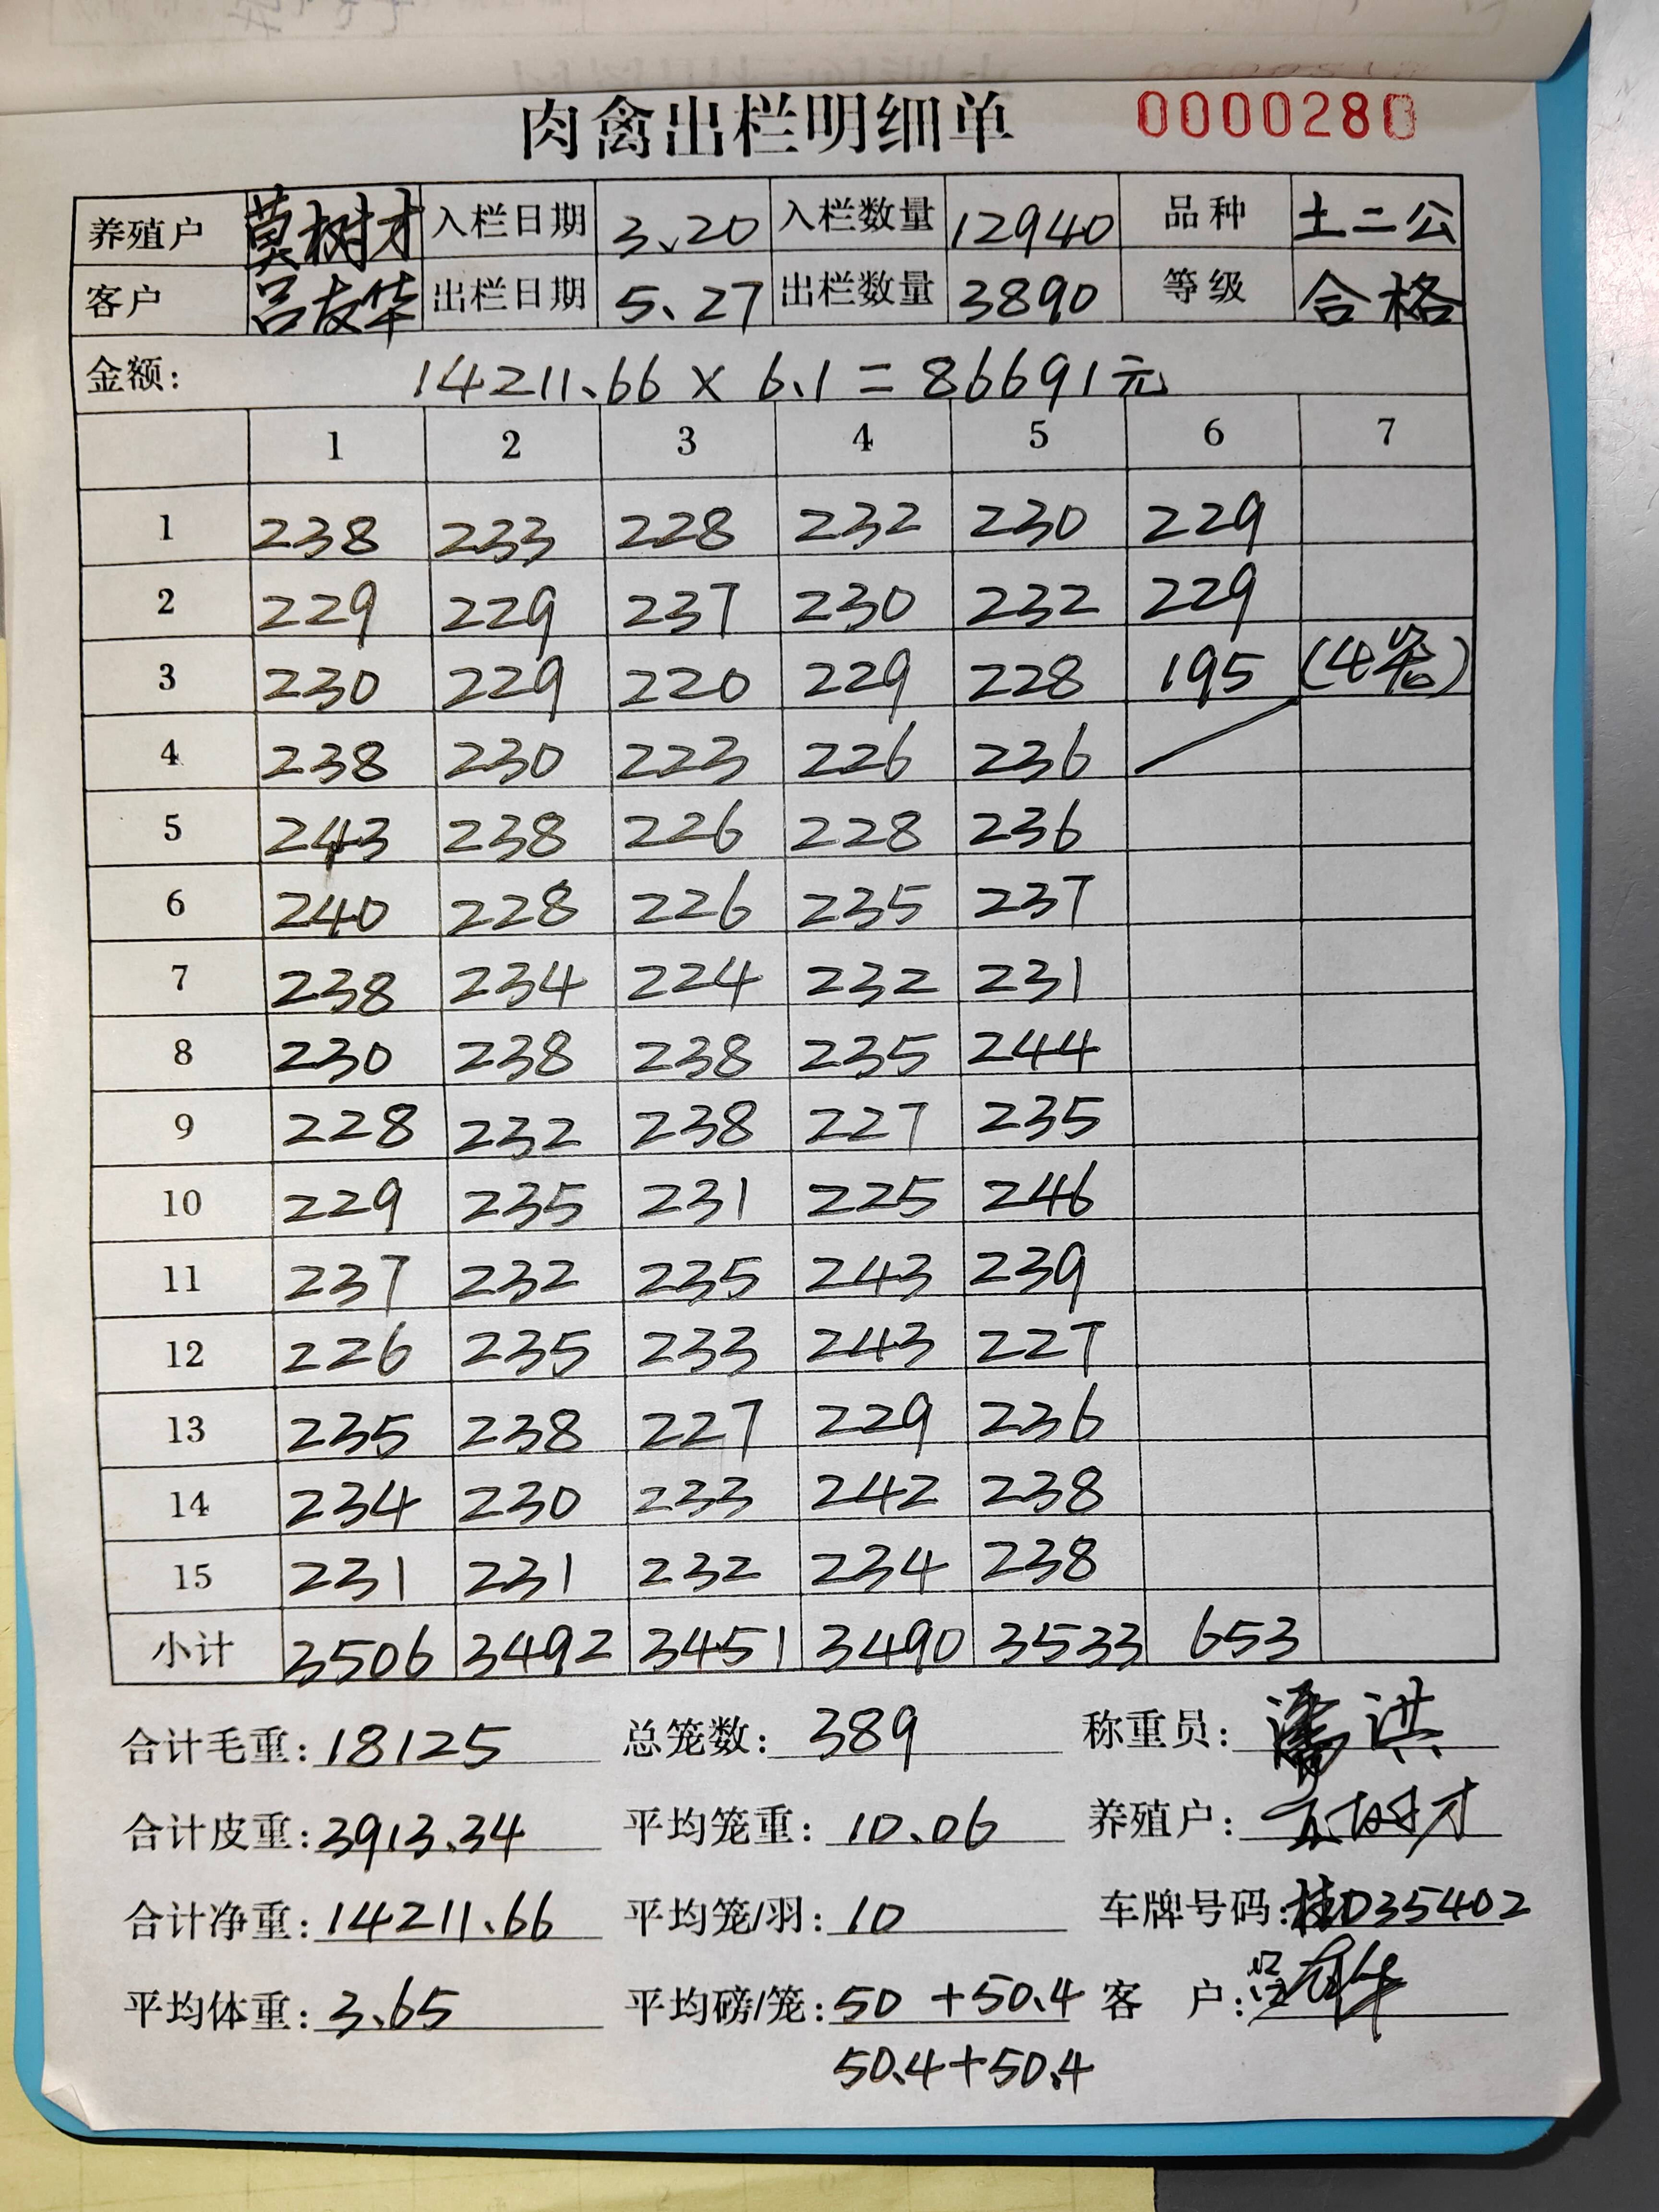 肉禽出栏明细单 0000280
养殖户 莫树才 入栏日期 3.20 入栏数量 12940 品种 土二公
客户 吕友华 出栏日期 5.27 出栏数量 3890 等级 合格
金额: 14211.66 × 6.1 = 86691元
1 2 3 4 5 6 7
1 238 233 228 232 230 229
2 229 229 237 230 232 229
3 230 229 220 229 228 195 (4笼)
4 238 230 223 226 236
5 243 238 226 228 236
6 240 228 226 235 237
7 238 234 224 232 231
8 230 238 238 235 244
9 228 232 238 227 235
10 229 235 231 225 246
11 237 232 235 243 239
12 226 235 233 243 227
13 235 238 227 229 236
14 234 230 233 242 238
15 231 231 232 234 238
小计 3506 3492 3451 3490 3533 653
合计毛重: 18125 总笼数: 389 称重员: 潘洪
合计皮重: 3913.34 平均笼重: 10.06 养殖户: 莫树才
合计净重: 14211.66 平均笼/羽: 10 车牌号码: 桂D35402
平均体重: 3.65 平均磅/笼: 50 +50.4 客 户: 吕友华
50.4+50.4